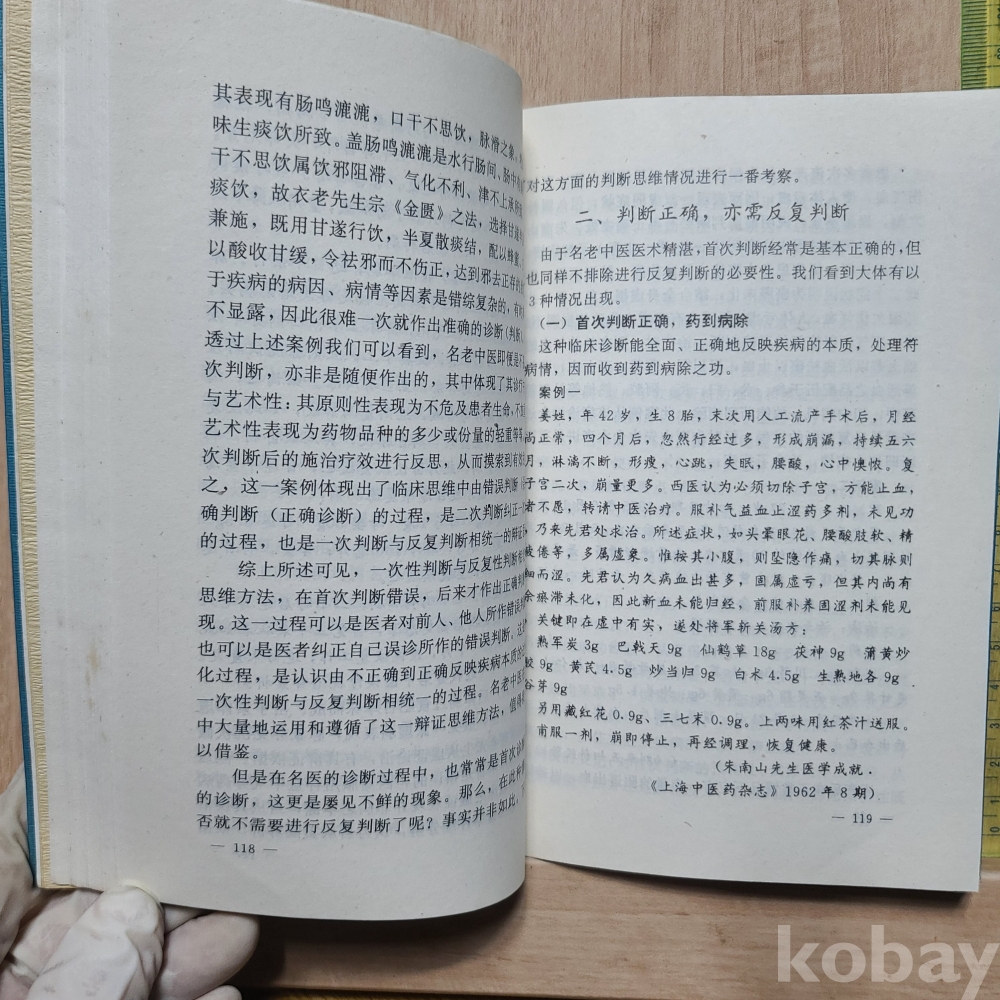 其表现有肠鸣漉漉，口干不思饮，脉滑之象，
味生痰饮所致。盖肠鸣漉漉是水行肠间、肠中
干不思饮属饮邪阻滞、气化不利、津不上承所
痰饮，故衣老先生宗《金匮》之法，选择甘遂
兼施，既用甘遂行饮，半夏散痰结，配以蜂蜜、
以酸收甘缓，令祛邪而不伤正，达到邪去正存的
于疾病的病因、病情等因素是错综复杂的，有
不显露，因此很难一次就作出准确的诊断(判断)
透过上述案例我们可以看到，名老中医即便是
次判断，亦非是随便作出的，其中体现了其诊疗
与艺术性：其原则性表现为不危及患者生命，不
艺术性表现为药物品种的多少或份量的轻重等等
次判断后的施治疗效进行反思，从而摸索到有效
之，这一案例体现出了临床思维中由错误判断（
确判断（正确诊断）的过程，是二次判断纠正一
的过程，也是一次判断与反复判断相统一的辩证
综上所述可见，一次性判断与反复性判断相
思维方法，在首次判断错误，后来才作出正确判
现。这一过程可以是医者对前人、他人所作错误判
也可以是医者纠正自己误诊所作的错误判断，这
化过程，是认识由不正确到正确反映疾病本质的
一次性判断与反复判断相统一的过程。名老中医
中大量地运用和遵循了这一辩证思维方法，值得
以借鉴。
但是在名医的诊断过程中，也常常是首次诊
的诊断，这更是屡见不鲜的现象。那么，在此种
否就不需要进行反复判断了呢？事实并非如此，
— 118 —
对这方面的判断思维情况进行一番考察。
二、判断正确，亦需反复判断
由于名老中医医术精湛，首次判断经常是基本正确的，但
也同样不排除进行反复判断的必要性。我们看到大体有以
3 种情况出现。
(一) 首次判断正确，药到病除
这种临床诊断能全面、正确地反映疾病的本质，处理符
病情，因而收到药到病除之功。
案例一
姜姓，年 42 岁，生 8 胎，末次用人工流产手术后，月经
尚正常，四个月后，忽然行经过多，形成崩漏，持续五六
月，淋漓不断，形瘦，心跳，失眠，腰酸，心中懊憹。复
子宫二次，崩量更多。西医认为必须切除子宫，方能止血，
者不愿，转请中医治疗。服补气益血止涩药多剂，未见功
乃来先君处求治。所述症状，如头晕眼花、腰酸肢软、精
疲倦等，多属虚象。惟按其小腹，则坠隐作痛，切其脉则
细而涩。先君认为久病血出甚多，固属虚亏，但其内尚有
余瘀滞未化，因此新血未能归经，前服补养固涩剂未能见
关键即在虚中有实，遂处将军斩关汤方：
熟军炭 3g 巴戟天 9g 仙鹤草 18g 茯神 9g 蒲黄炒
胶 9g 黄芪 4.5g 炒当归 9g 白术 4.5g 生熟地各 9g
谷芽 9g
另用藏红花 0.9g、三七末 0.9g。上两味用红茶汁送服。
甫服一剂，崩即停止，再经调理，恢复健康。
(朱南山先生医学成就．
《上海中医药杂志》1962 年 8 期)
— 119 —
kobay